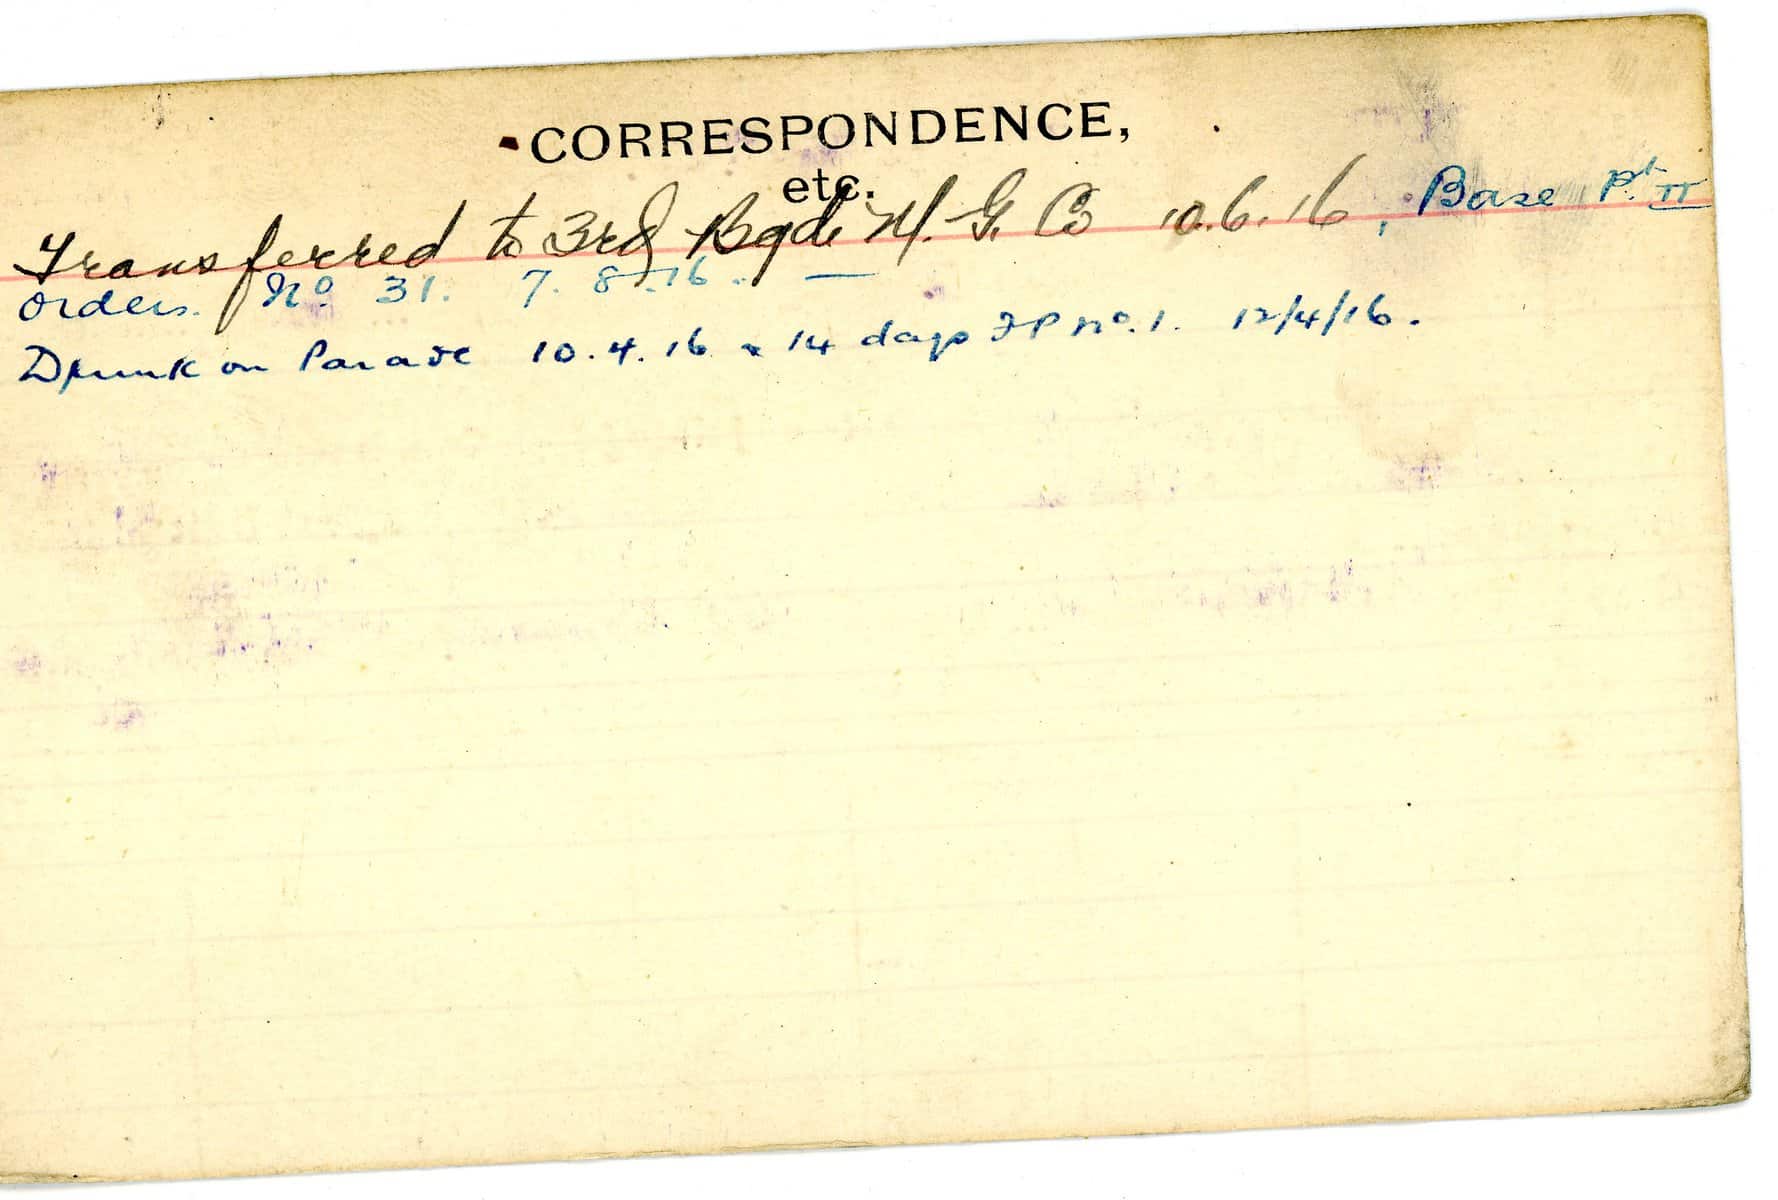 CORRESPONDENCE,
etc.
Transferred to 3rd Bgde M. G. Co 10.6.16, Base Pt. II
Orders. No. 31. 7. 8. 16. —
Drunk on Parade 10.4.16 14 days FP No. 1. 12/4/16.